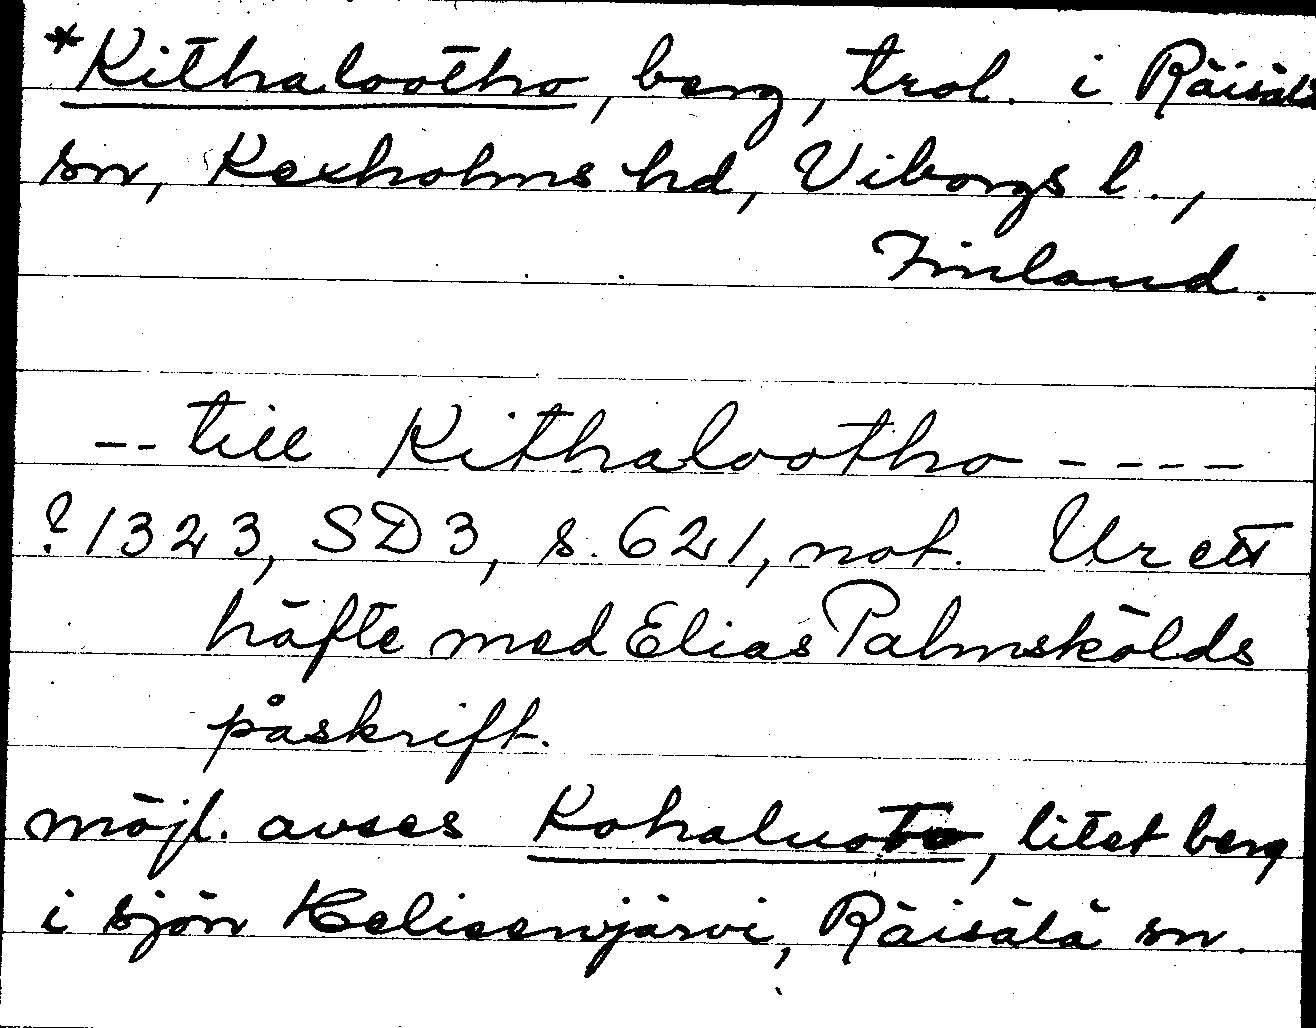 *Kithalootho, berg, trol. i Räisälä
sn, Kexholms hd, Viborgs l.,
Finland.
-- till Kithalootho ----
? 1323, SD 3, s. 621, not. Ur ett
häfte med Elias Palmskölds
påskrift.
möjl. avses Kohaluoto, litet berg
i sjön Heliseenjärvi, Räisälä sn.